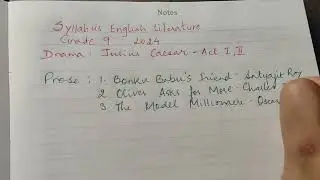 Notes
Syllabus English Literature
Grade 9 2024
Drama : Julius Caesar - Act I, II
Prose : 1. Bonku Babu's Friend - Satyajit Ray
2. Oliver Asks for More - Charles
3. The Model Millionaire - Oscar